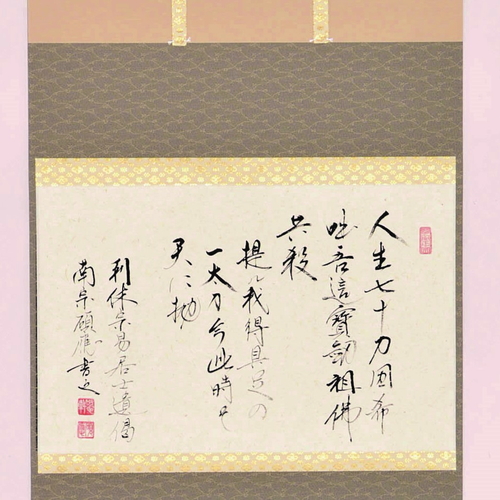 人生七十力囲希
咄吾這寶劔祖佛
共殺
提ル我得具足の
一太刀今此時そ
天に抛
利休宗易居士遺偈
南宗碩應書之